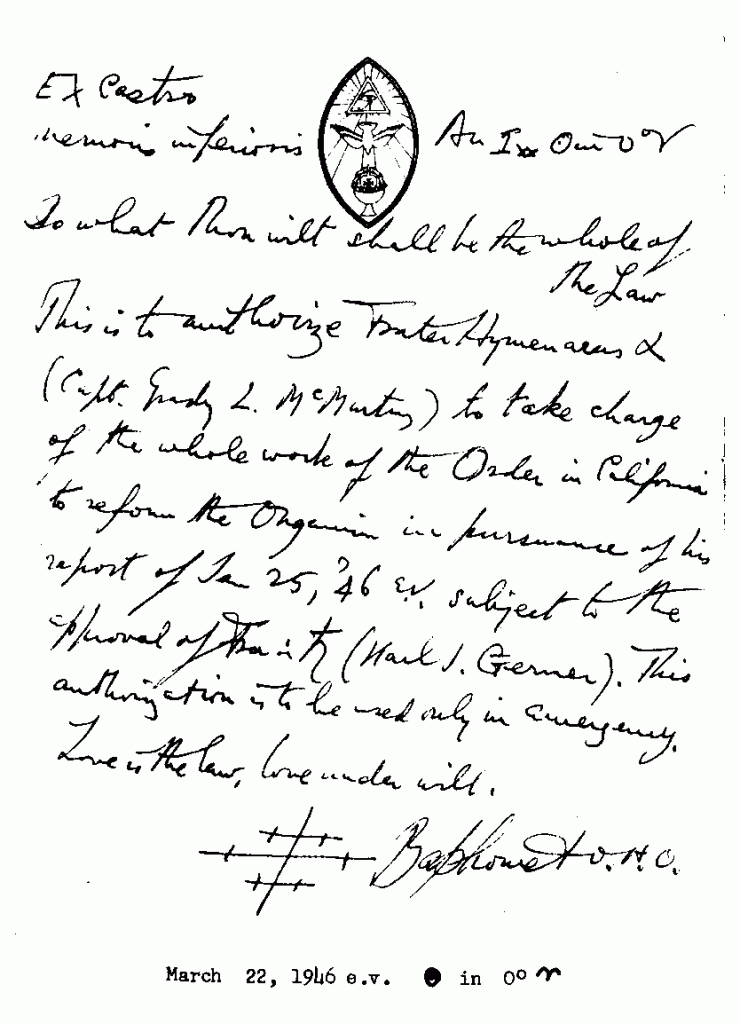 Ex Castro
Nemoris inferioris
An Ixx Om 0° ♈
Do what thou wilt shall be the whole of
the Law
This is to authorize Frater Hymenaeus α
(Capt. Grady L. McMurtry) to take charge
of the whole work of the Order in California
to reform the Organism in pursuance of his
report of Jan 25, '46 e.v. subject to the
approval of (Karl J. Germer). This
authorization is to be used only in emergency.
Love is the law, love under will.
Baphomet O.H.O.
March 22, 1946 e.v. in 0° ♈